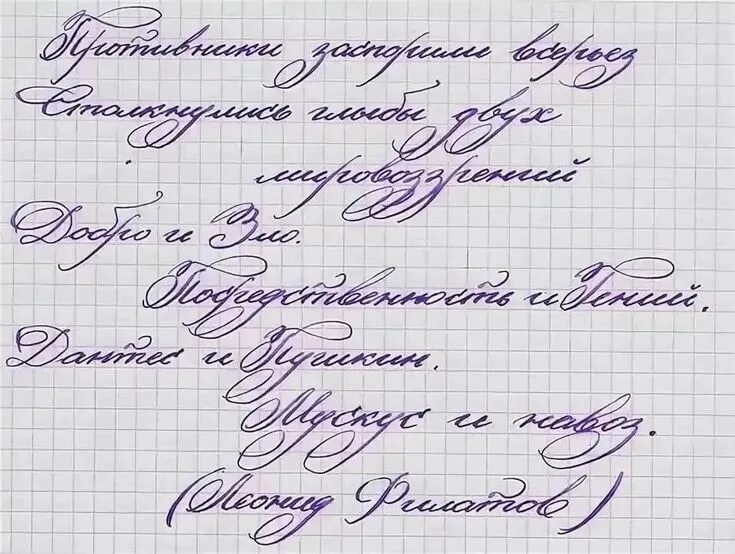 Противники заспорили всерьез
Сталкнулись глыбы двух
мировоззрений
Добро и Зло.
Посредственность и Гений.
Дантес и Пушкин.
Мускус и навоз.
(Леонид Филатов)